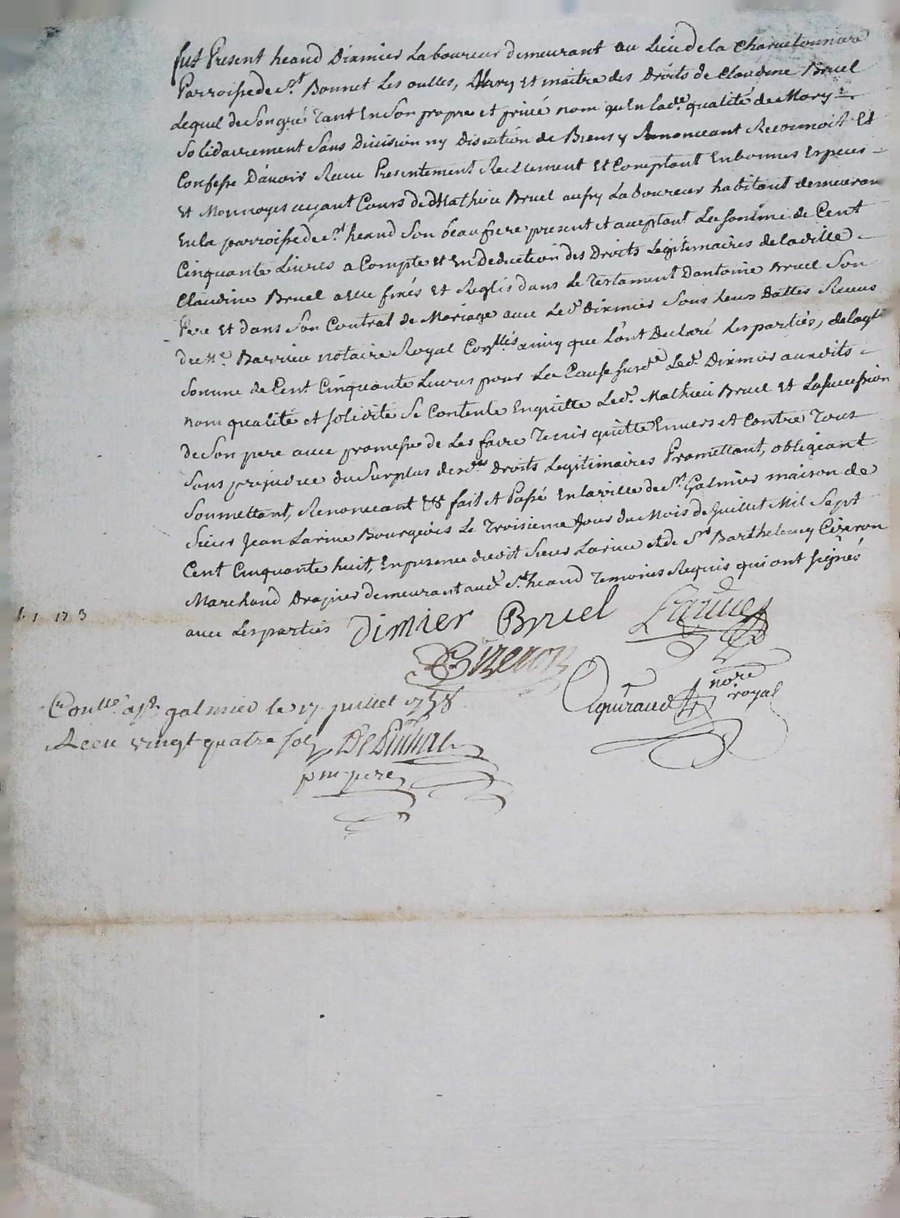 fut Present heand Dixmier Laboureur demeurant au Lieu de la
Parroisse de St. Bonnet Les oulles, Mary et maitre des Droits de Claudine Bruel
Lequel de Son gré Tant En Son propre et privé nom qu'En lade. qualité de Mary
Solidairement Sans Division ny Discution de Biens y Renonceant Reconnoit Et
Confesse D'avoir Recu Presentement Reellement Et Comptant En bonnes Especes
Et Monnoyes ayant Cours de Mathieu Bruel aussy Laboureur habitant demeurant
En la parroisse de St. heand Son beau frere present et aceptant La somme de Cent
Cinquante Livres a Compte et En Deduction des Droits Legitimaires de
Claudine Bruel a Elle fixés Et Reglés dans Le Testament D'antoine Bruel Son
Pere Et dans Son Contrat de Mariage avec Led. Dixmier Sous Leurs Dattes Recus
de Me. Barrieu notaire Royal Conllés ainsy que L'ont Declaré Les parties, de laqlle
Somme de Cent Cinquante Livres pour La Cause Led. Dixmier auxdits
nom qualité et solidité Se Contente En quitte Led. Mathieu Bruel Et La succession
de Son pere avec promesse de Les faire Tenir quitte Envers et Contre Tous
Sans prejudice du Surplus desd. Droits Legitimaires Promettant, obligeant
Soumettant, Renonceant &&. fait et Passé En la ville de St. Galmier maison de
Sieur Jean Larine Bourgeois Le Troisieme Jour du Mois de Juillet Mil Sept
Cent Cinquante huit, En presence dudit Sieur Larine et de Sr. Barthelemy Cizeron
Marchand Drapier demeurant aud. St. heand Temoins Requis qui ont Signés
avec Les parties Dimier Bruel Larine
BCizeron
Conllé a St. galmier le 17 juillet 1758
Recu vingt quatre sols
pm pere
Aguiraud nore
royal